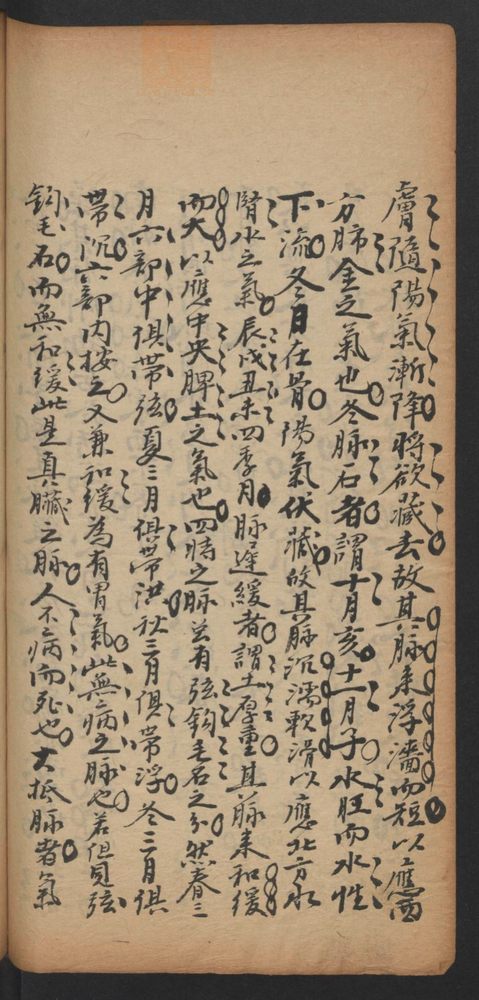 膚隨陽氣漸降將欲藏去故其脉来浮濇而短以應西
方肺金之氣也冬脉石者謂十月亥十一月子水旺而水性
下流冬月在骨陽氣伏藏故其脉沉濡軟滑以應北方水
腎水之氣辰戌丑未四季月脉遲緩者謂土厚重其脉来和緩
而大以應中央脾土之氣也四時之脉並有弦鈎毛石之分然春三
月六部中俱带弦夏三月俱带洪秋三月俱带浮冬三月俱
带沉六部内按之又兼和緩為有胃氣此無病之脉也若但見弦
鈎毛石而無和緩此是真臟之脉人不病而死也大抵脉者氣